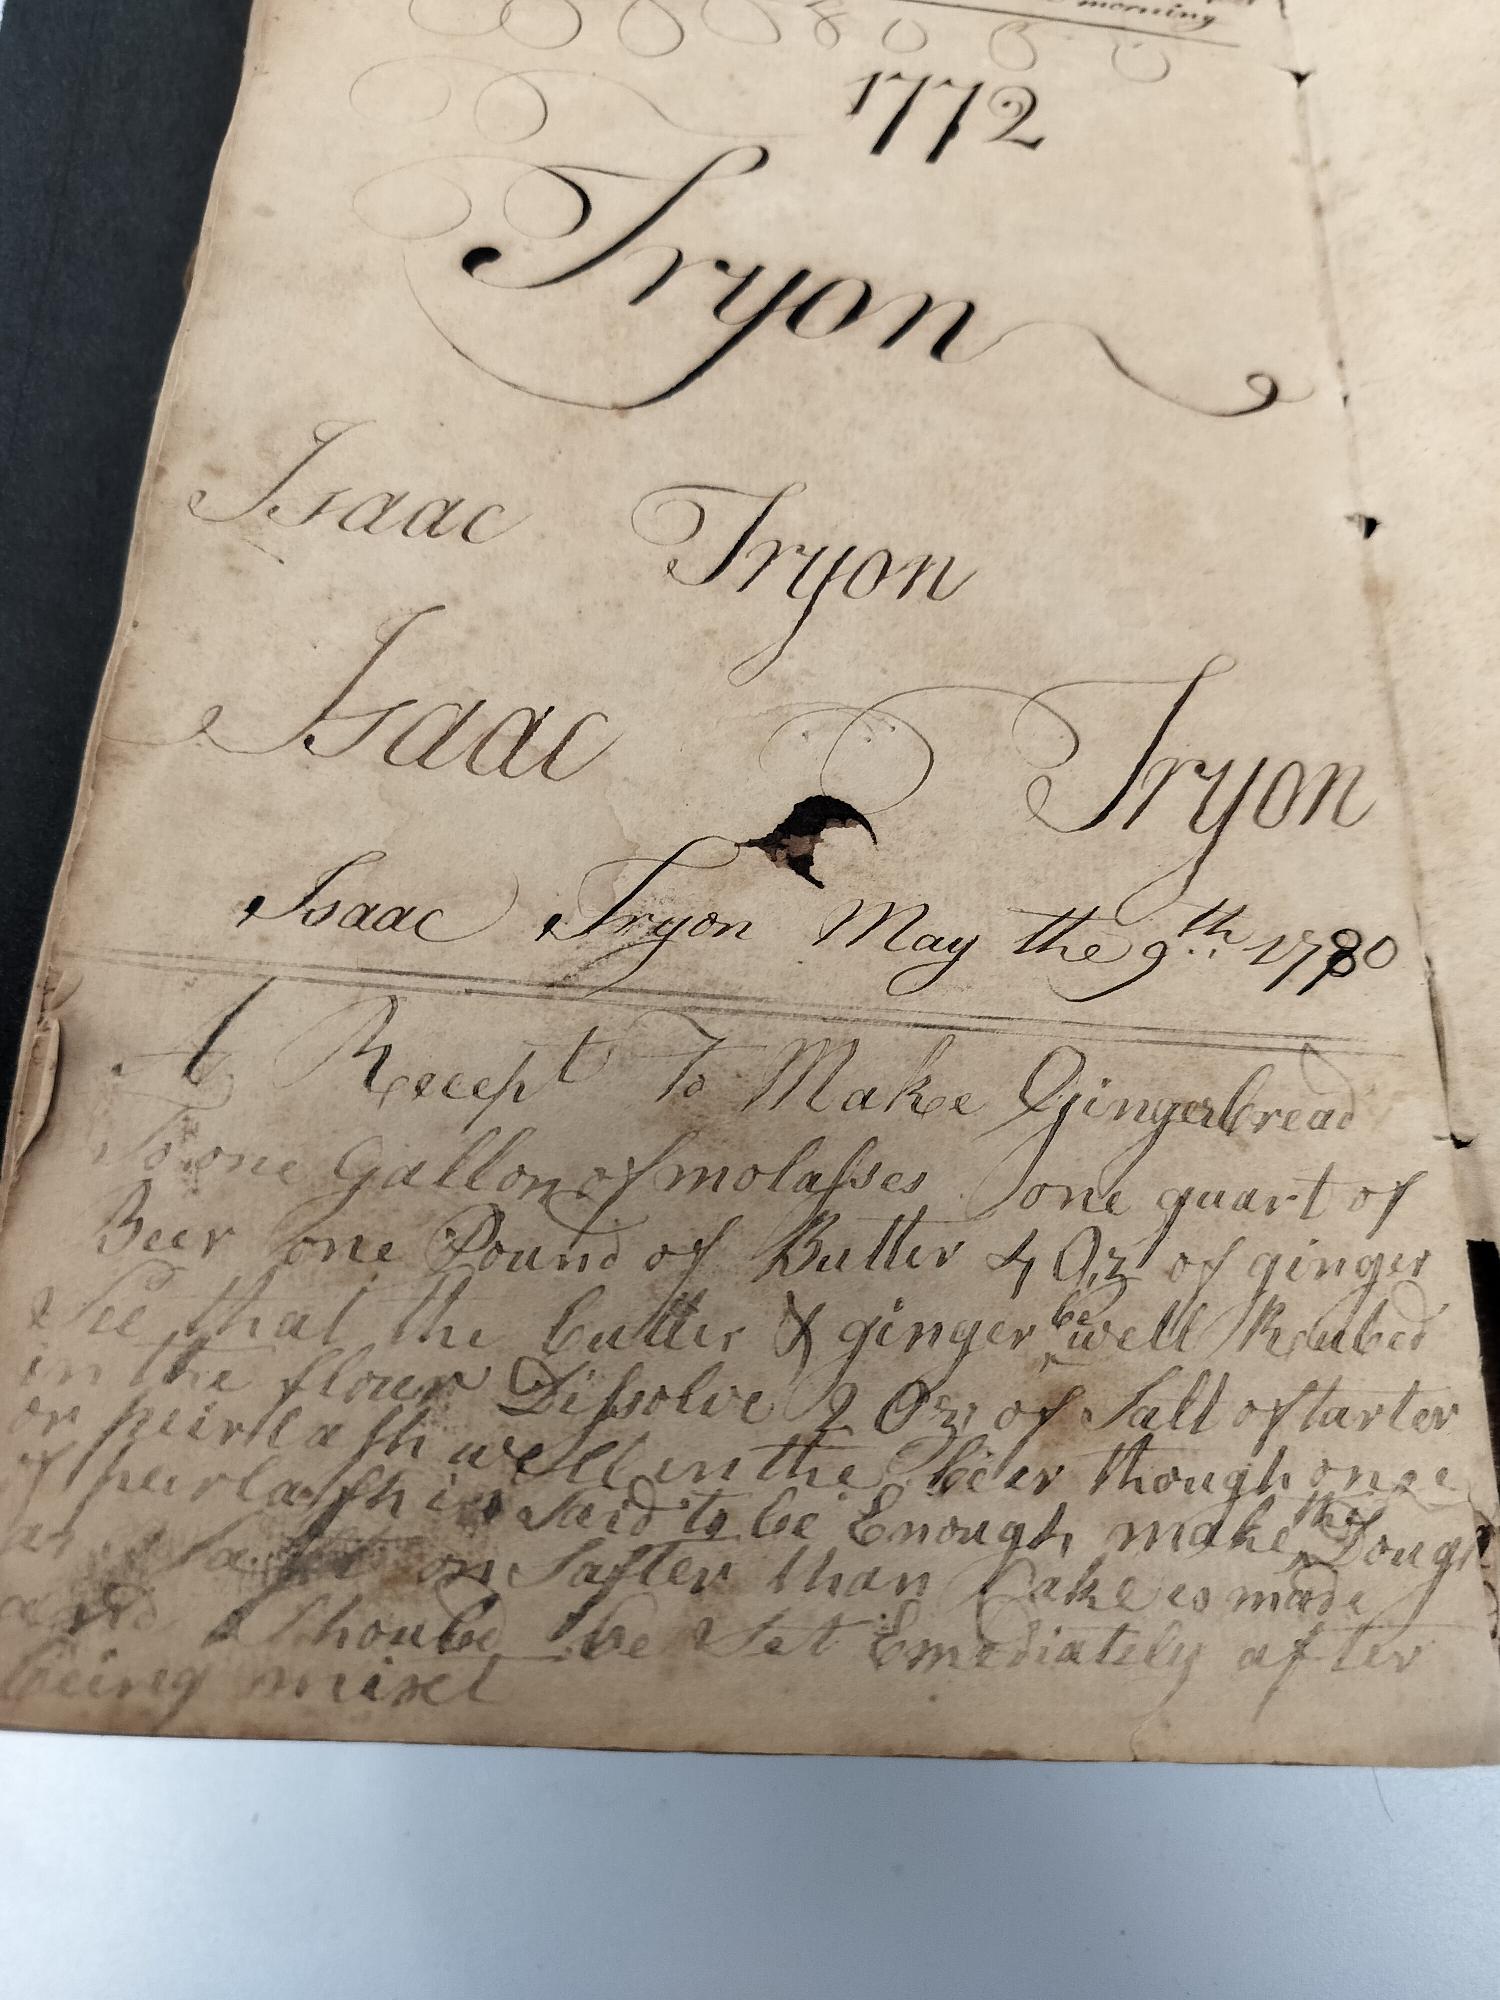 morning
1772
Tryon
Isaac Tryon
Isaac Tryon
Isaac Tryon May the 9th 1780
A Recept To Make Gingerbread
To one Gallon of molasses one quart of
Beer one Pound of Butter 4 Oz of ginger
See that the butter & ginger be well Roubed
in the flour Dissolve 2 Oz of Salt of tarter
or peirlash well in the beer though one
of peirlash is said to be Enough make the Dough
on Safter than Cake is made
and Shoubd be Set Emediately after
being mixel